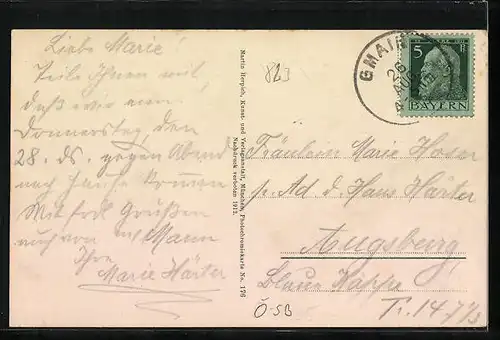 Liebe Marie!
Teile Ihnen mit,
daß wir am
Donnerstag, den
28. ds. gegen Abend
nach Hause kommen
Mit Grüßen
auch von m/ Mann
Ihre
Marie Härter
Martin Herpich, Kunst- und Verlagsanstalt, München, Photochromiekarte No. 176
Nachdruck verboten 1912.
823
GMAIN
26
AUG
5 5
BAYERN
Fräulein Marie
p. Ad d. Hans Härter
Augsburg
Blaue Kappe
Ö-SB